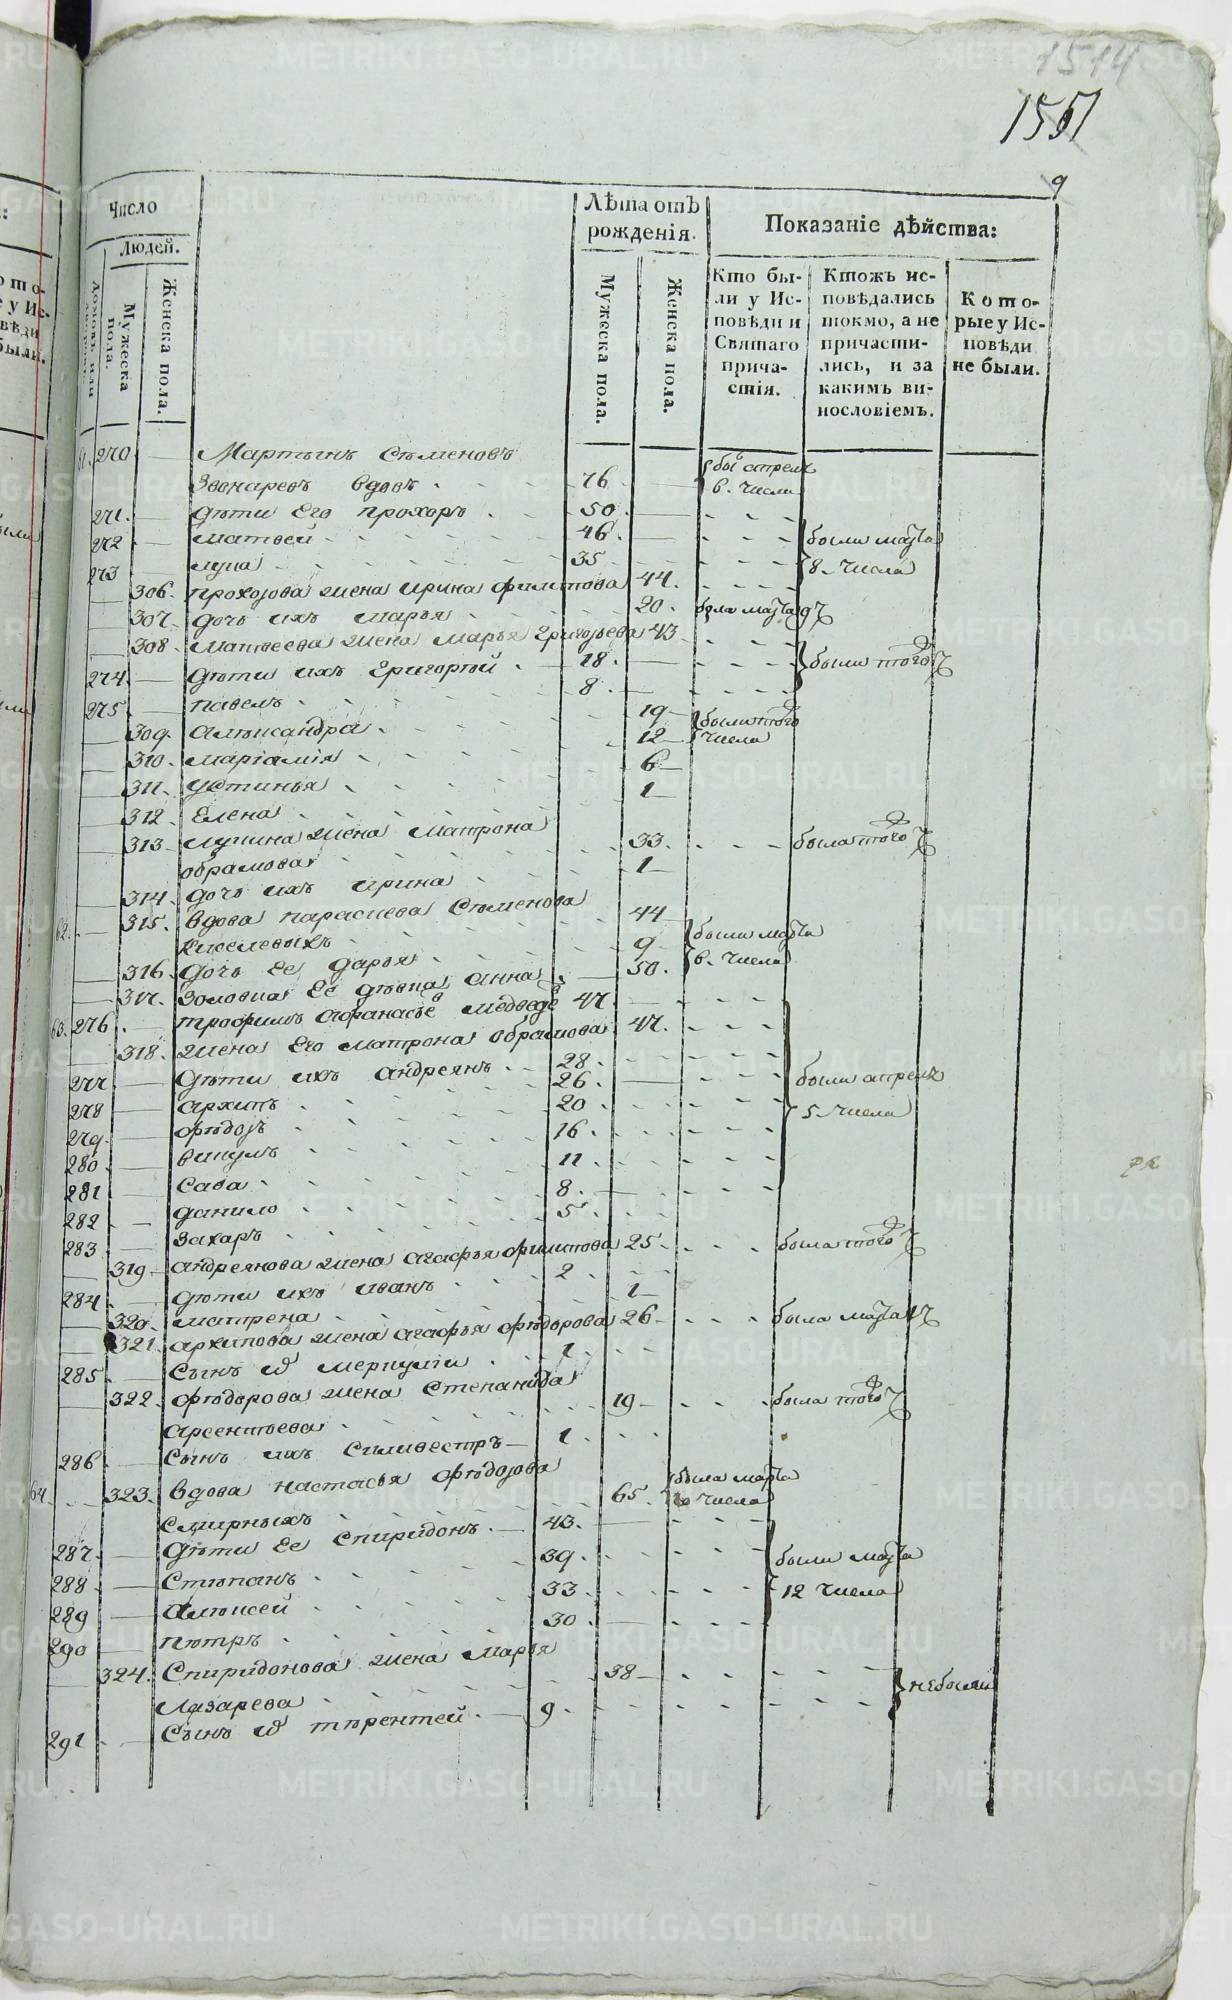 1514
1551
9
Число
Людей.
Домовъ или
Мужеска пола.
Женска пола.
Лѣта отъ рожденія.
Мужеска пола.
Женска пола.
Показаніе дѣйства:
Кто бы-
ли у Ис-
повѣди и
Святаго
прича-
стія.
Ктожъ ис-
повѣдались
токмо, а не
причасти-
лись, и за
какимъ ви-
нословіемъ.
Кото-
рые у Ис-
повѣди
не были.
61. 270 Мартынъ Сѣменовъ
Звонаревъ вдовъ 76 апреля
6. числа
271. дѣти Его прохоръ 50
272 матвей 46 были марта
273 лупа 35 8. числа
306. прохорова жена ирина филипова 44.
307. дочь ихъ марья 20. была марта 9 ч
308. матвеева жена марья григорьева 43
274. дѣти ихъ Григорей 18. были того ч
275 павелъ 8
309. алѣксандра 19 были того
310. мариамия 12 числа
311. устинья 6
312. Елена 1
313. лупина жена матрона
обрамова 33. была того ч
314. дочь ихъ ирина 1
62. 315. вдова параскева Сѣменова
киселевыхъ 44 были марта
316. дочь Ее дарья 9 6. числа
317. золовка Ее дѣвка анна 50.
63. 276 трофимъ афанасьевъ медведевъ 47.
318. жена Его матрона обрамова 47.
277 дѣти ихъ андреянъ 28. были апреля
278 архипъ 26. 5. числа
279. фѣдоръ 20
280 викулъ 16.
281 сава 11
282 данило 8.
283 захаръ 5
319 андреянова жена агафья филипова 25 была того ч
284. дѣти ихъ иванъ 2
320. матрена 1
321. архипова жена агафья фѣдорова 26 была марта ч
285. Сынъ ея меркулии 1
322. фѣдорова жена Степанида
арсентьева 19 была того ч
286 Сынъ ихъ Силивестръ 1
64. 323. вдова настасья фѣдорова
смирныхъ 65. была марта
числа
287. дѣти Ее спиридонъ 43.
288 Стѣпанъ 39 были марта
289 Алѣксей 33 12 числа
290 пѣтръ 30
324. Спиридонова жена марья
Лазарева 38 небыли
291 Сынъ ея тѣрентей 9
METRIKI.GASO-URAL.RU